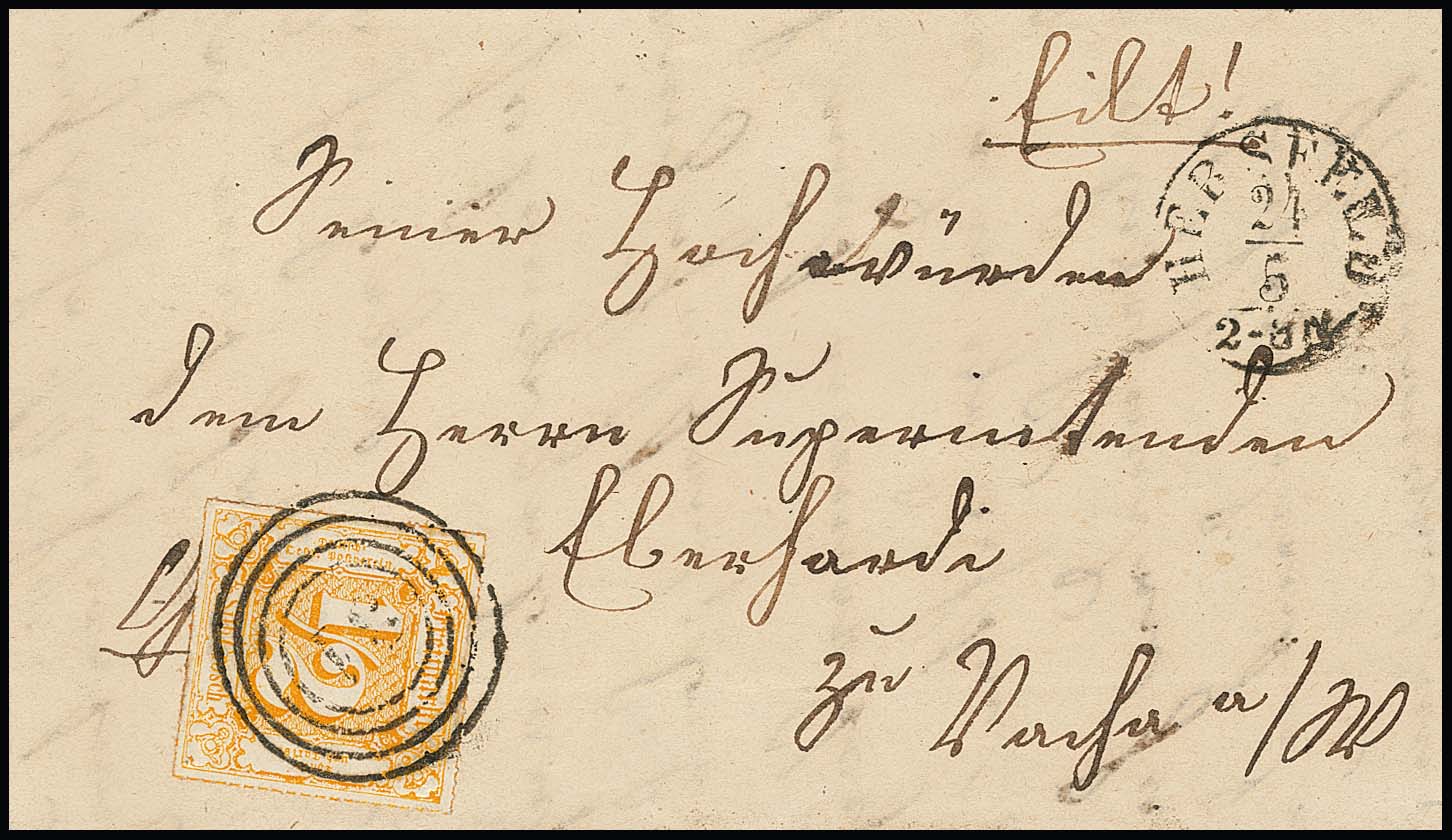 Eilt!
HERSFELD
24
5
2-3 N
Seiner Hochwürden
dem Herrn Superintenden
Eberhardi
zu Vacha a/W
½